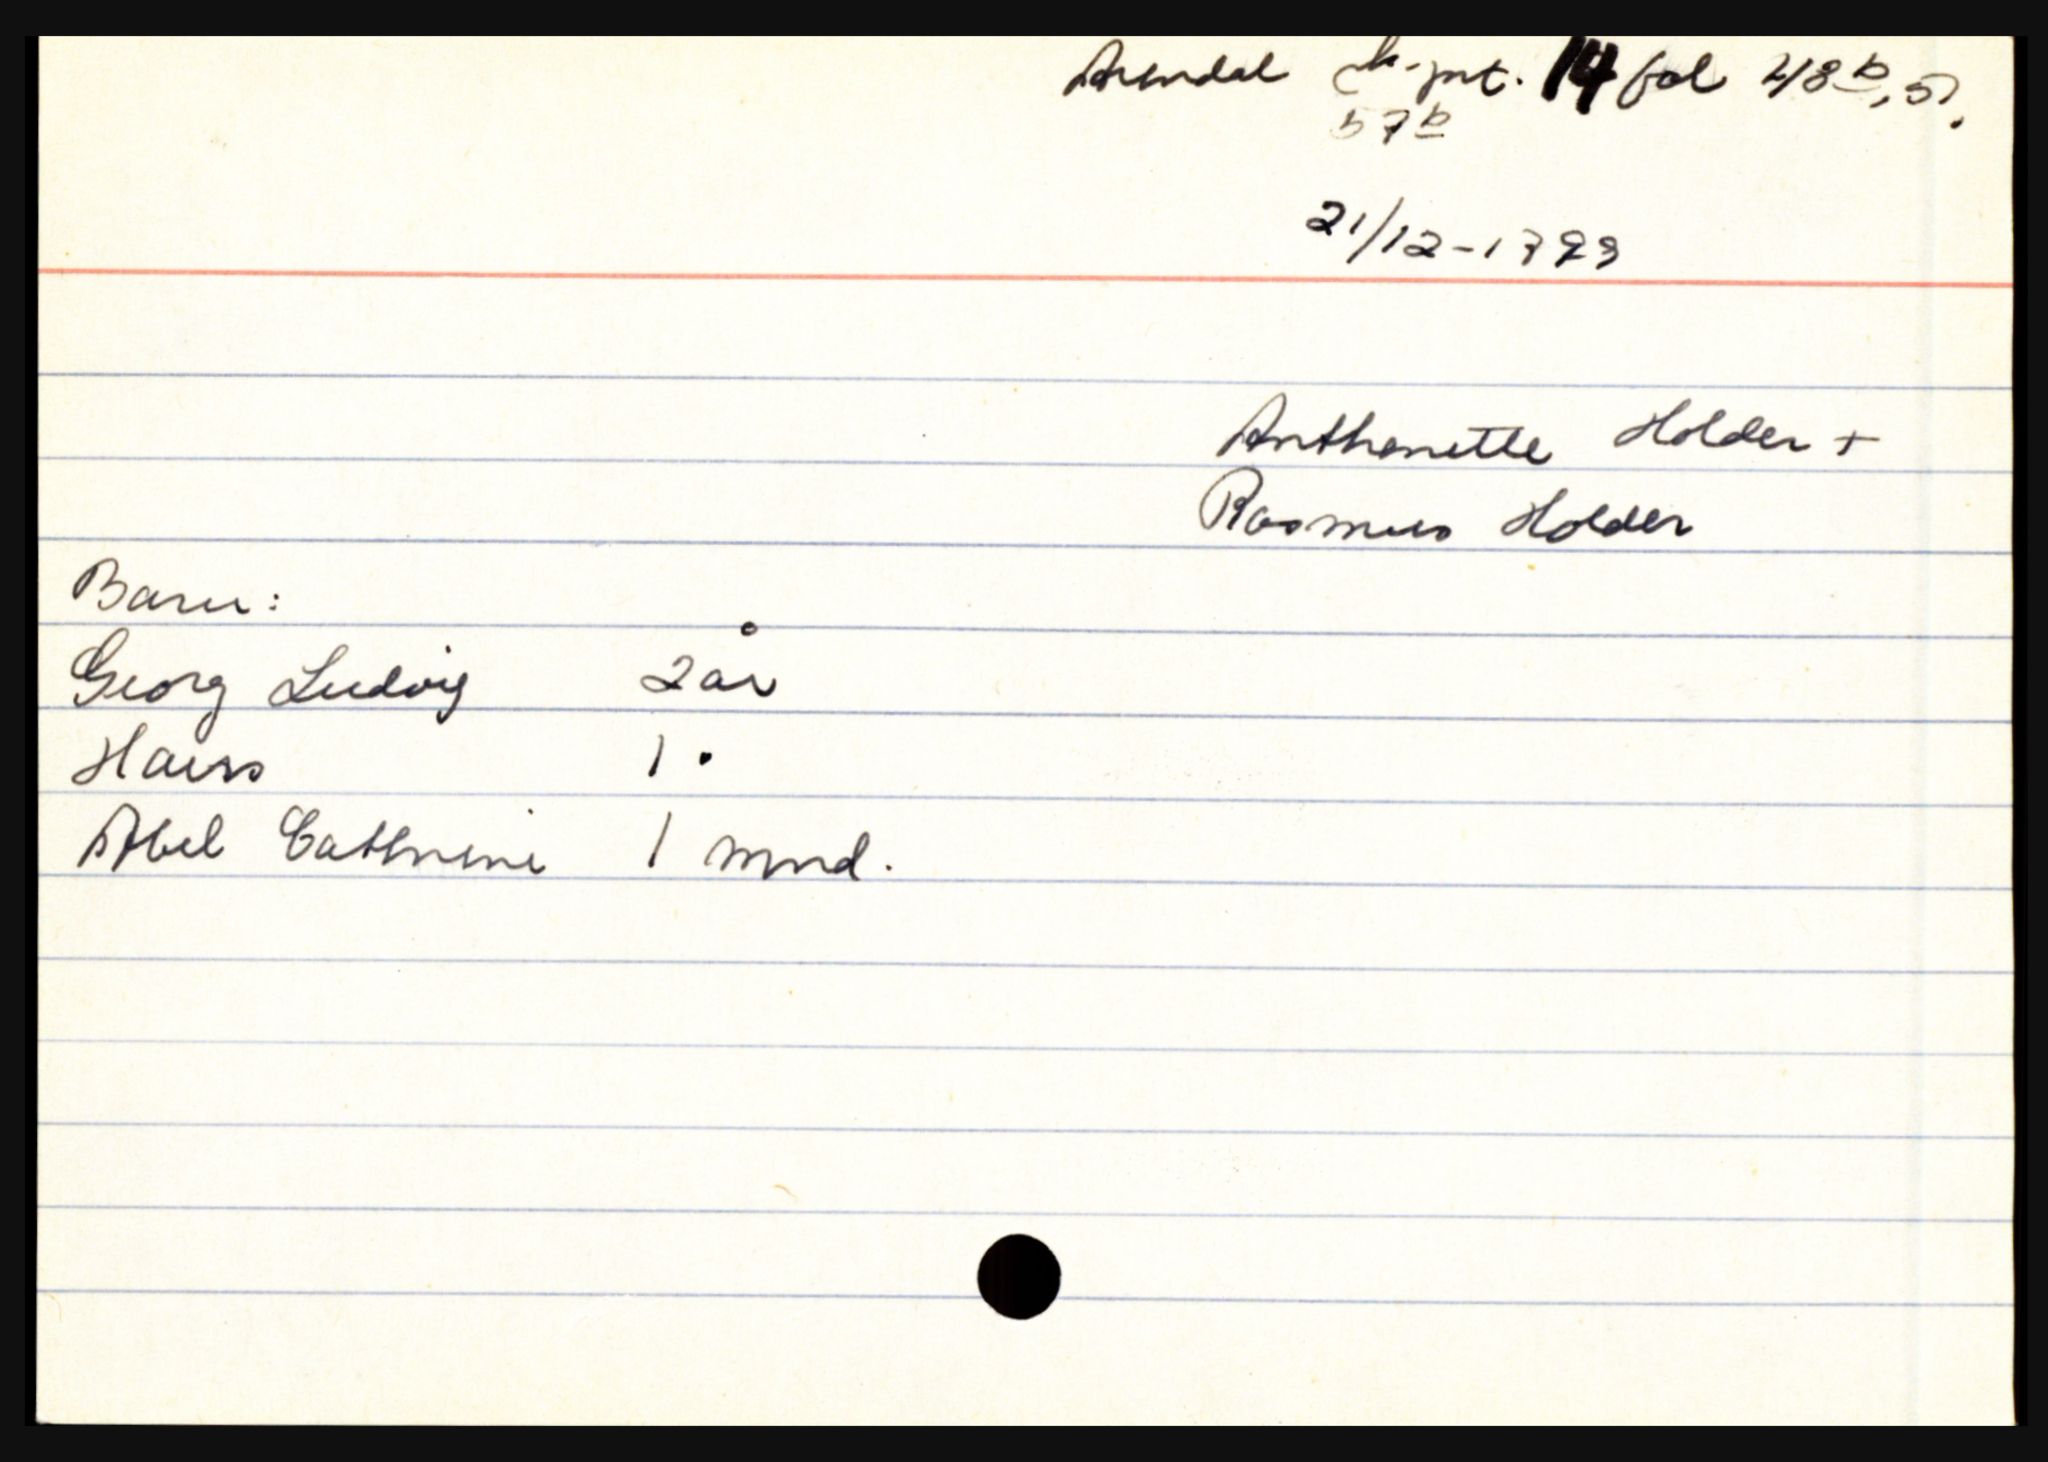 Arendal sk.prt. 14 fol 48b, 51,
57b
21/12-1799
Anthonette Holder +
Rasmus Holder
Barn:
Georg Ludvig 2 år
Hans 1 "
Abel Cathrine 1 mnd.